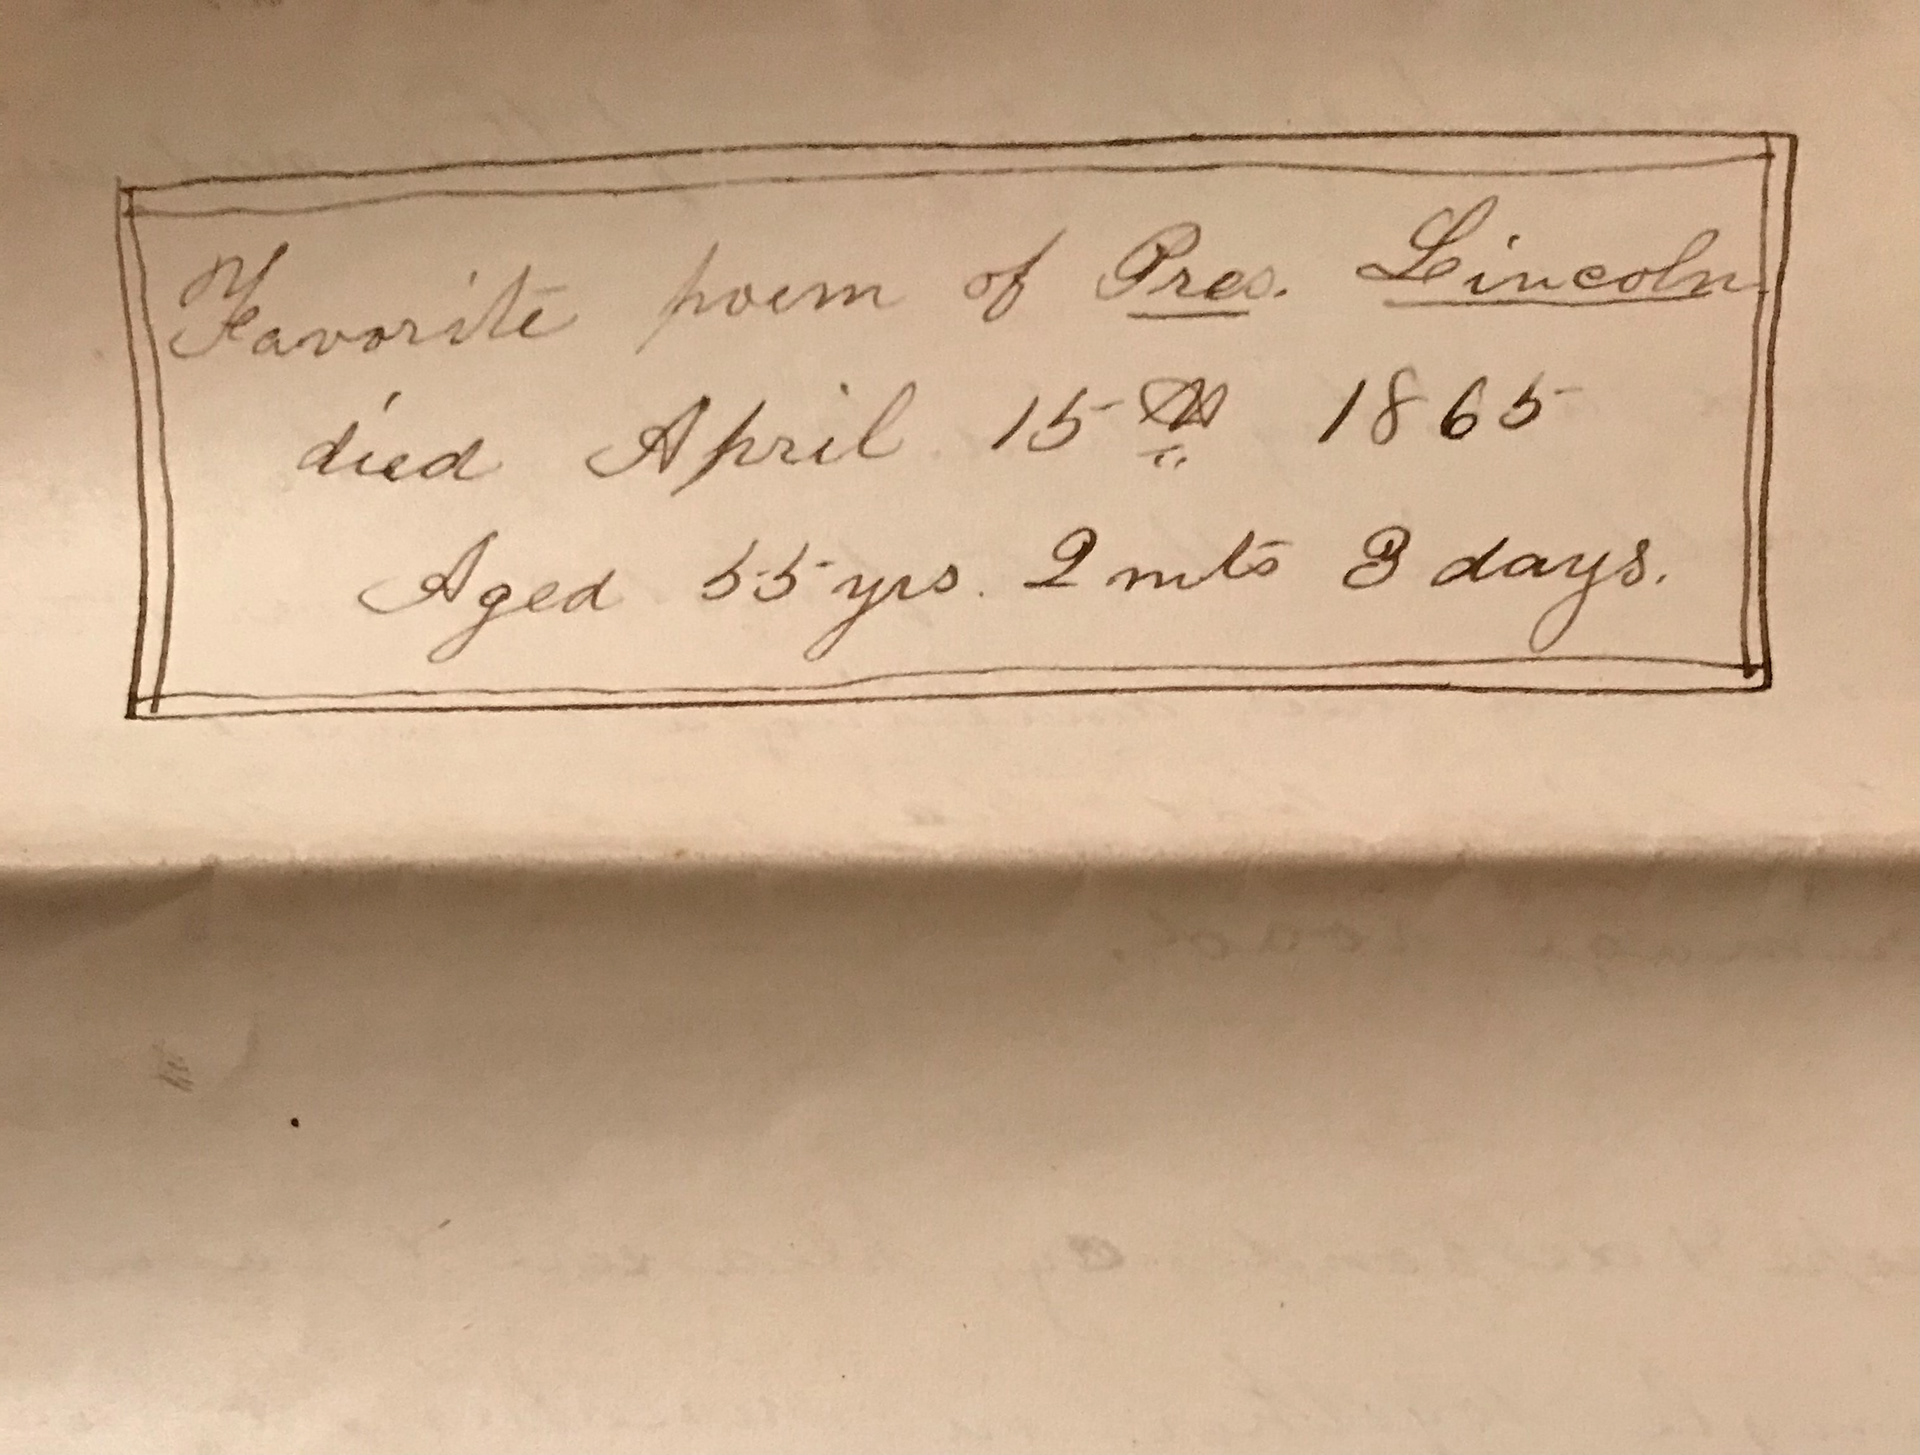 Favorite poem of Pres. Lincoln
died April 15th 1865
Aged 55 yrs. 2 mts 3 days.